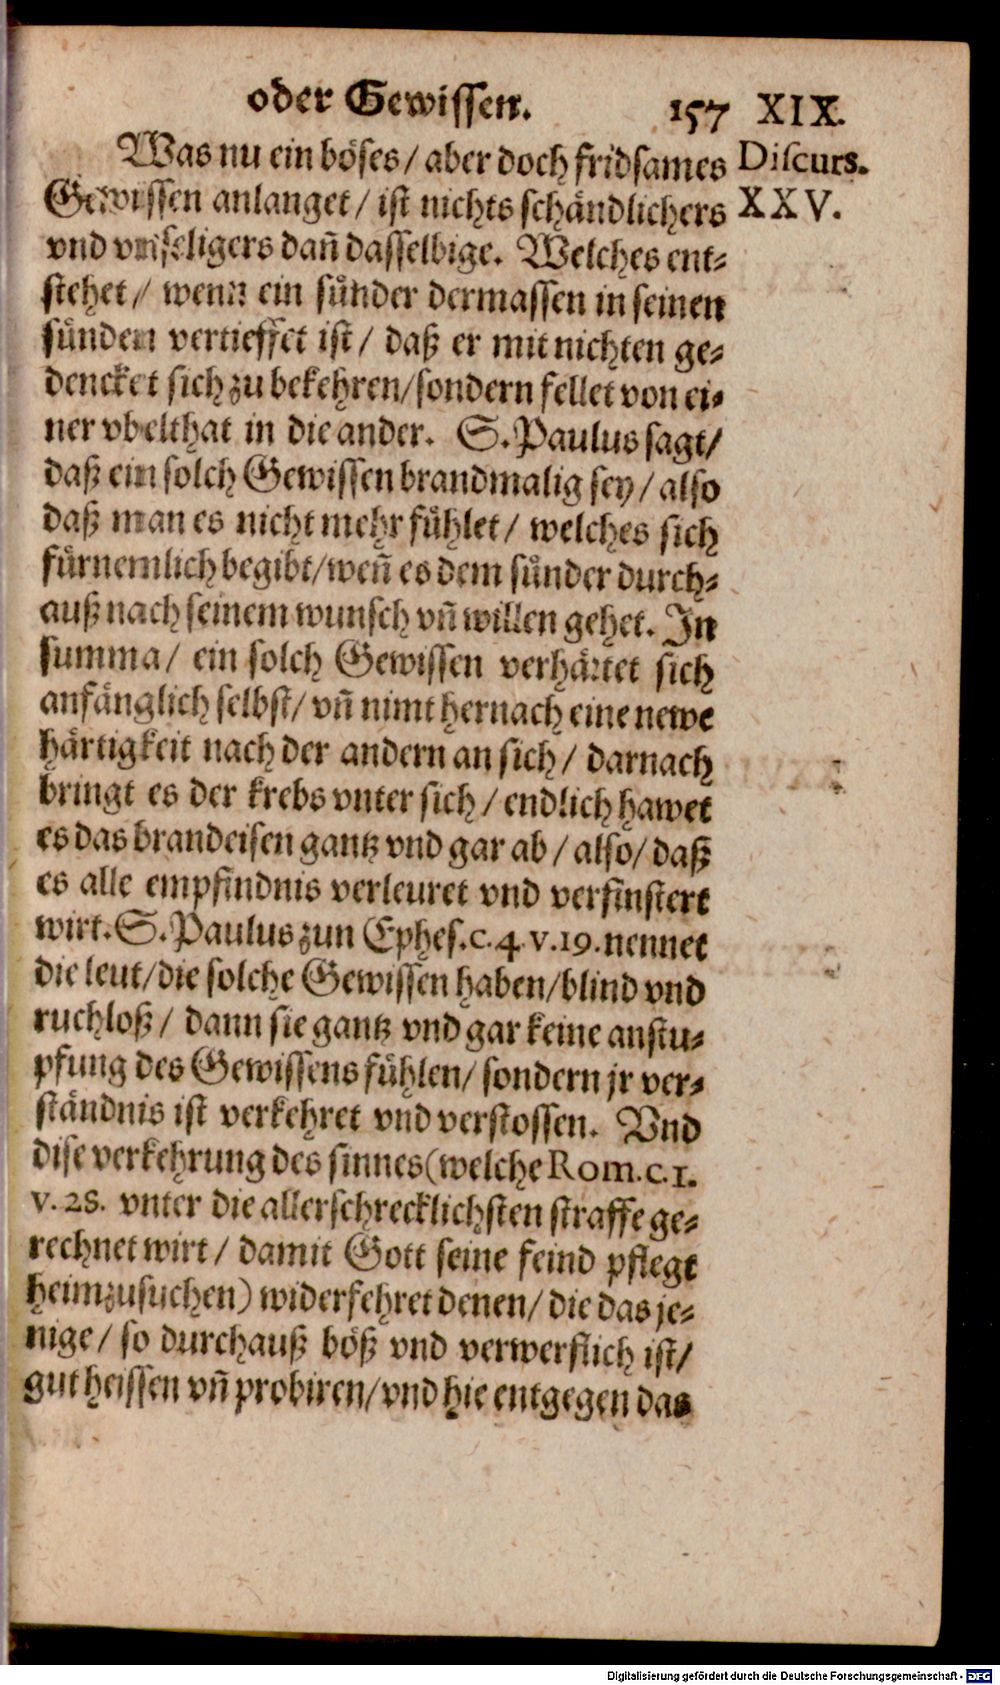 oder Gewissen. 157 XIX.
Was nu ein böses / aber doch fridsames Discurs.
Gewissen anlanget / ist nichts schändlichers XXV.
vnd vnseligers dañ dasselbige. Welches ent-
stehet / wenn ein sünder dermassen in seinen
sünden vertieffet ist / daß er mit nichten ge-
dencket sich zu bekehren / sondern fellet von ei-
ner vbelthat in die ander. S. Paulus sagt /
daß ein solch Gewissen brandmalig sey / also
daß man es nicht mehr fühlet / welches sich
fürnemlich begibt / weñ es dem sünder durch-
auß nach seinem wunsch vñ willen gehet. In
summa / ein solch Gewissen verhärtet sich
anfänglich selbst / vñ nimt hernach eine newe
härtigkeit nach der andern an sich / darnach
bringt es der krebs vnter sich / endlich hawet
es das brandeisen gantz vnd gar ab / also / daß
es alle empfindnis verleuret vnd verfinstert
wirt. S. Paulus zun Ephes. c. 4. v. 19. nennet
die leut / die solche Gewissen haben / blind vnd
ruchloß / dann sie gantz vnd gar keine anstu-
pfung des Gewissens fühlen / sondern jr ver-
ständnis ist verkehret vnd verstossen. Vnd
dise verkehrung des sinnes (welche Rom. c. 1.
v. 28. vnter die allerschrecklichsten straffe ge-
rechnet wirt / damit Gott seine feind pflegt
heimzusuchen) widerfehret denen / die das je-
nige / so durchauß böß vnd verwerflich ist /
gut heissen vñ probiren / vnd hie entgegen das
Digitalisierung gefördert durch die Deutsche Forschungsgemeinschaft - DFG